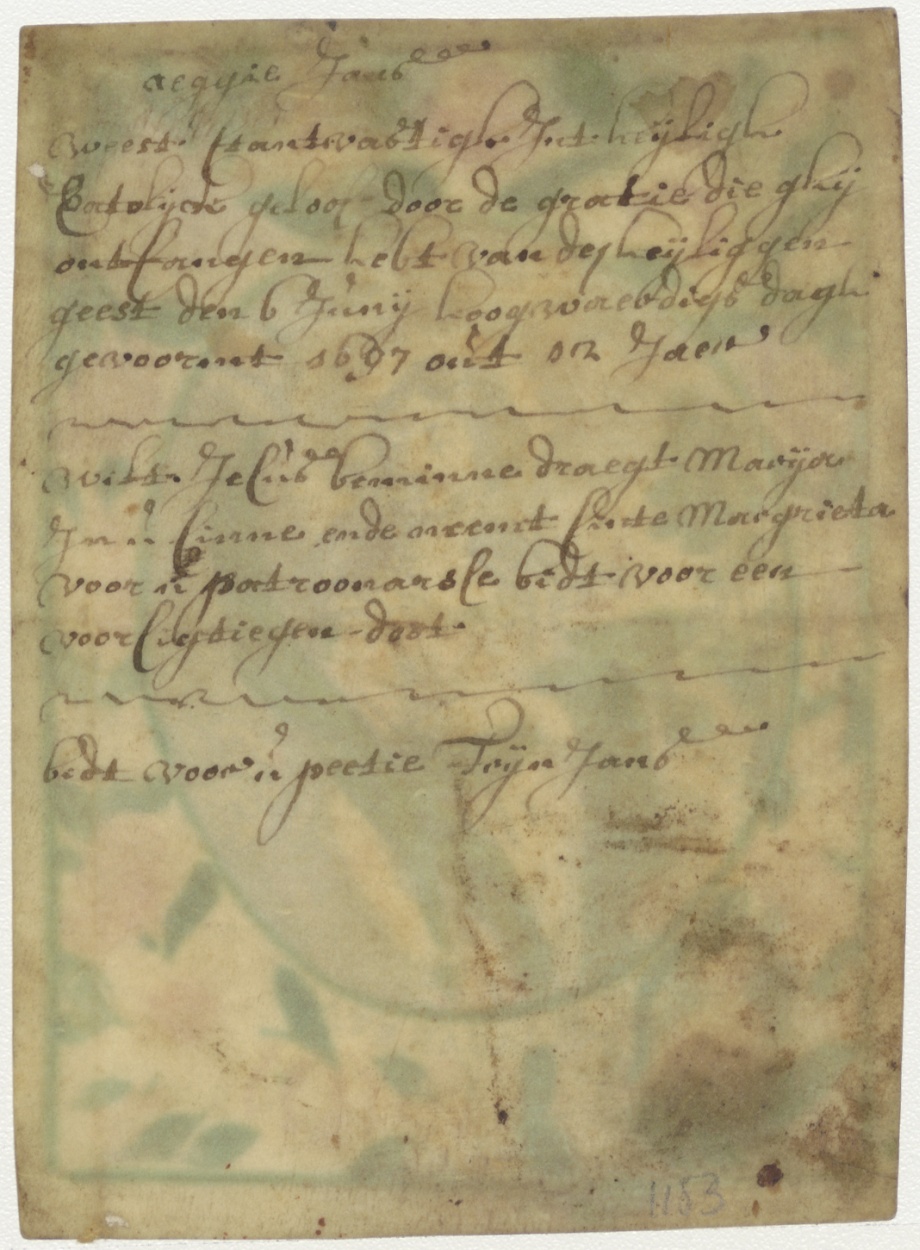 aegyie Jans
weest stantvastigh Int heyligh
Catolyck geloof door de gratie die ghij
ontfangen hebt van des heyliggen
geest den 6 Junij hoogwaerdigs dagh
gevoormt 1697 out 12 Jaer
wilt Jesus beminne draegt Marija
In u sinne ende neemt sinte Margrieta
voor u patroonarse bidt voor een
voorsigtiegen doot
bidt voor u peetie Trijn Jans
1153